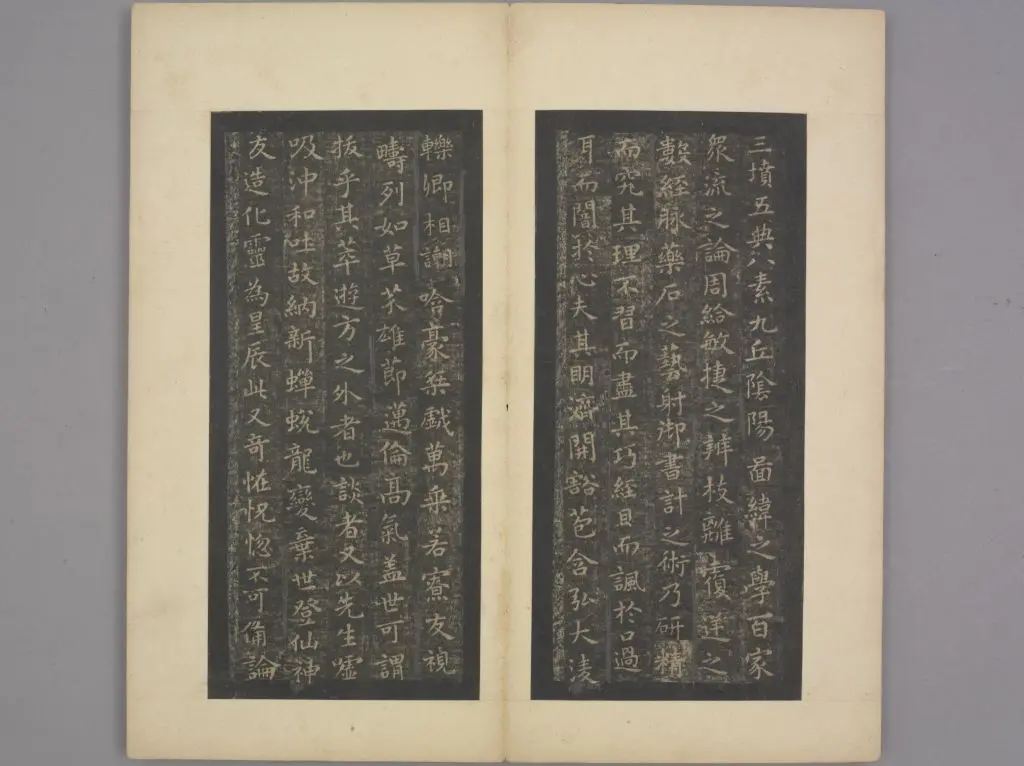 三墳五典八素九丘陰陽啚緯之學百家
衆流之論周給敏捷之辨枝離覆逆之
數經脉藥石之藝射御書計之術乃研精
而究其理不習而盡其巧經目而諷於口過
耳而闇於心夫其明濟開豁苞含弘大淩
轢卿相謿哈豪桀戱萬乘若寮友視
疇列如草芥雄節邁倫高氣盖世可謂
拔乎其萃遊方之外者也談者又以先生噓
吸沖和吐故納新蟬蛻龍變棄世登仙神
友造化靈為星辰此又奇恠怳惚不可備論